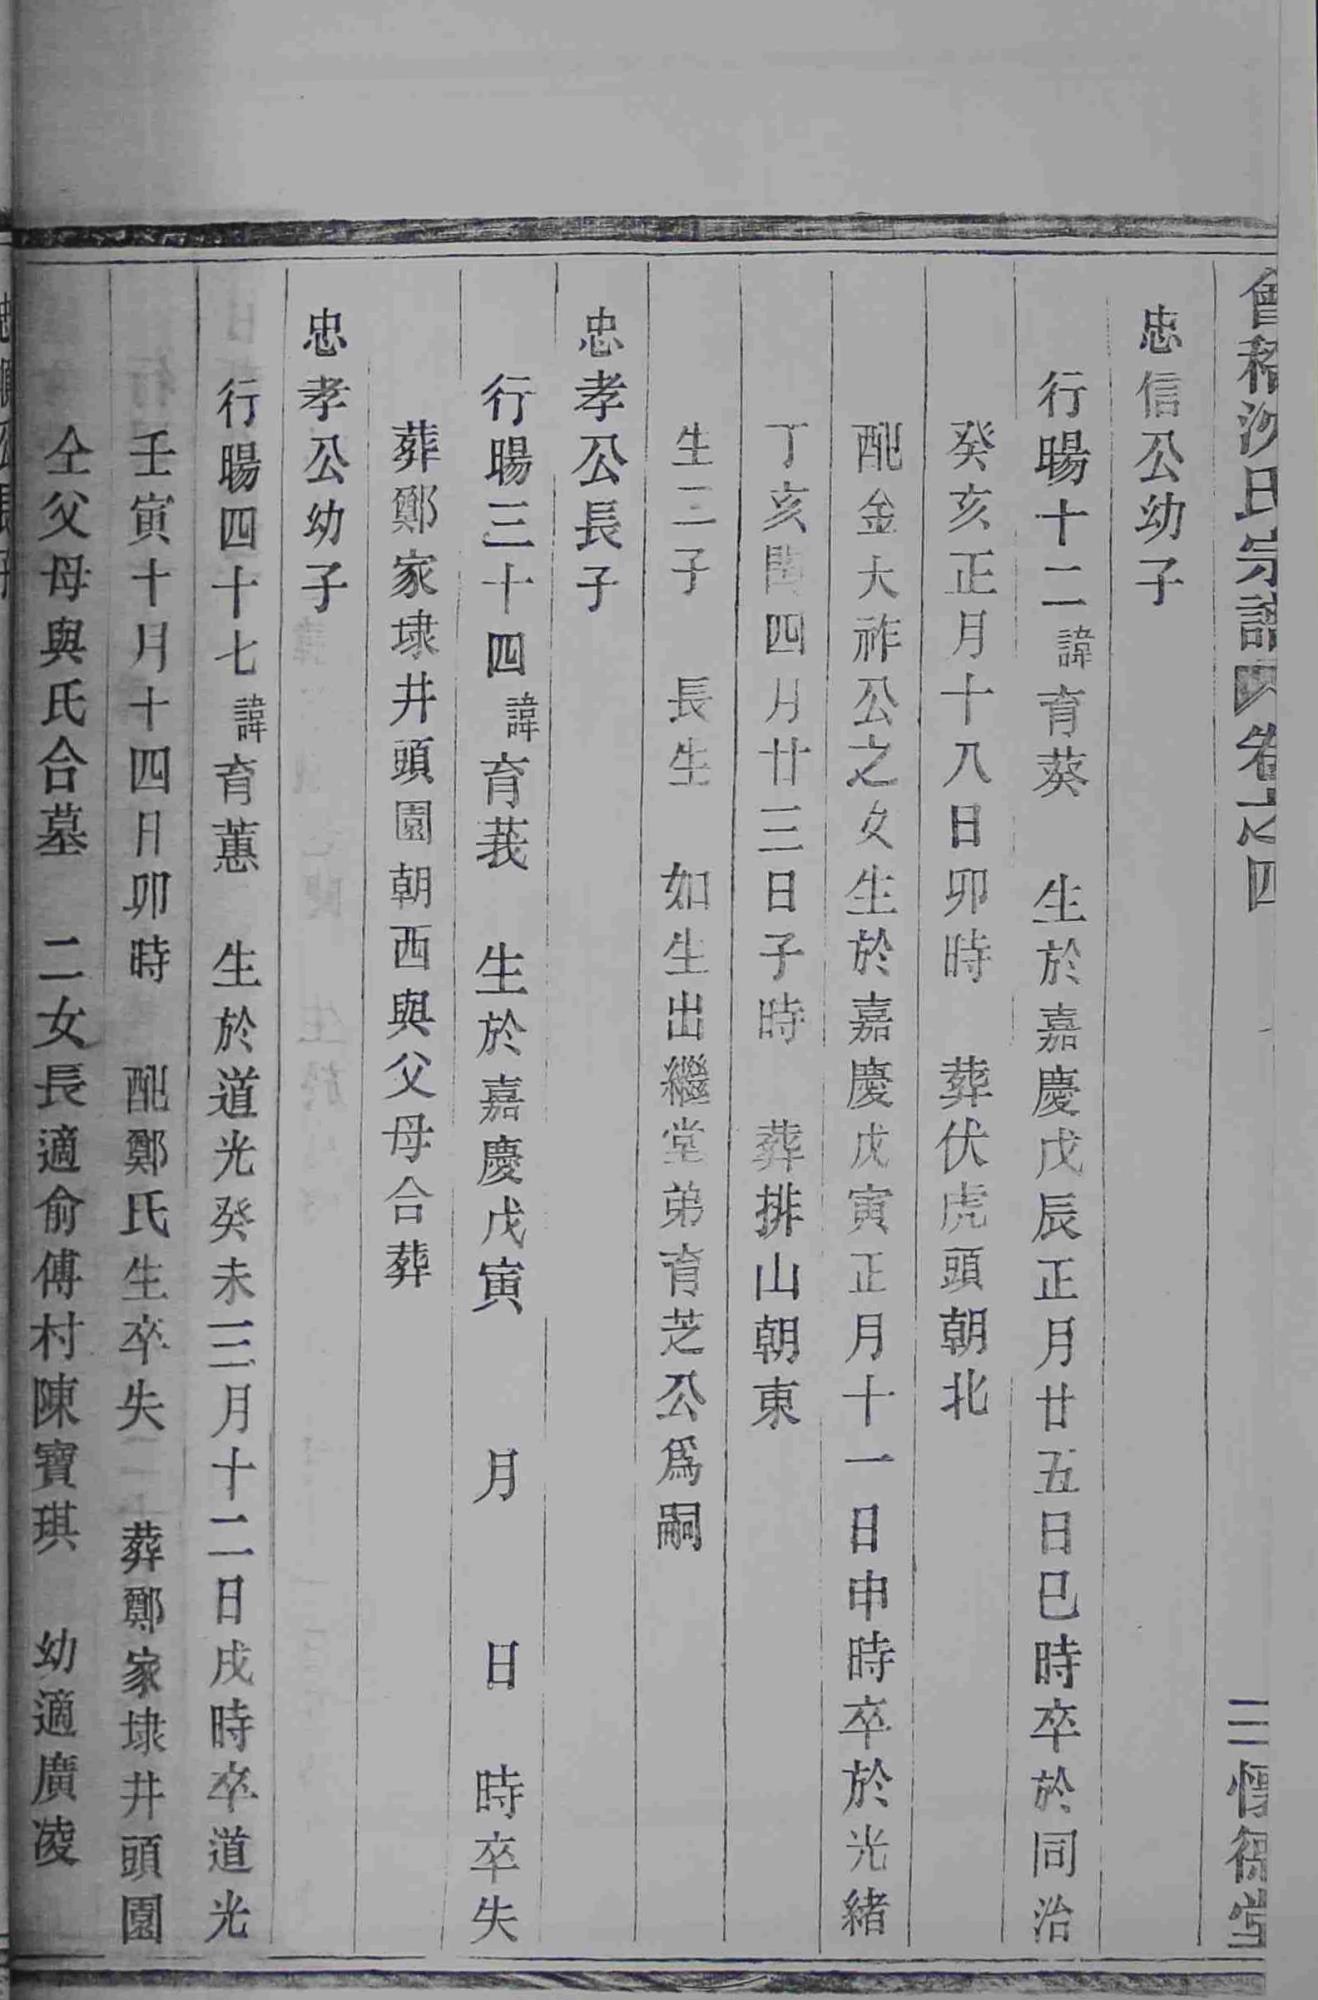 會稽沈氏宗譜 卷之四 二 懷德堂
忠信公幼子
行暘十二諱育葵 生於嘉慶戊辰正月廿五日巳時卒於同治
癸亥正月十八日卯時 葬伏虎頭朝北
配金大祚公之女生於嘉慶戊寅正月十一日申時卒於光緒
丁亥閏四月廿三日子時 葬排山朝東
生二子 長生 如生出繼堂弟育芝公爲嗣
忠孝公長子
行暘三十四諱育莪 生於嘉慶戊寅 月 日 時卒失
葬鄭家埭井頭園朝西與父母合葬
忠孝公幼子
行暘四十七諱育蕙 生於道光癸未三月十二日戌時卒道光
壬寅十月十四日卯時 配鄭氏生卒失 葬鄭家埭井頭園
仝父母與氏合墓 二女長適俞傅村陳寶琪 幼適廣凌